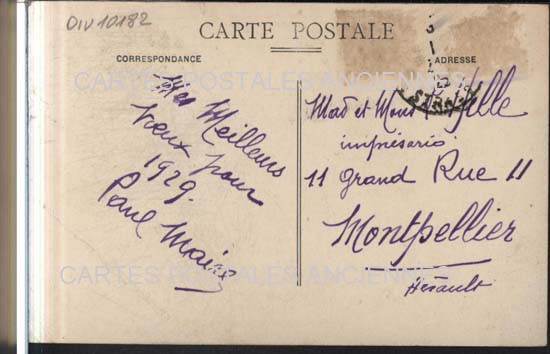 DIV 10182
CARTE POSTALE
CORRESPONDANCE
ADRESSE
CARTES POSTALES ANCIENNES
Mes Meilleurs
Voeux pour
1929.
Paul
Mad et Mons
imprésario
11 grand Rue 11
Montpellier
Hérault
CARTES POSTALES ANCIENNES